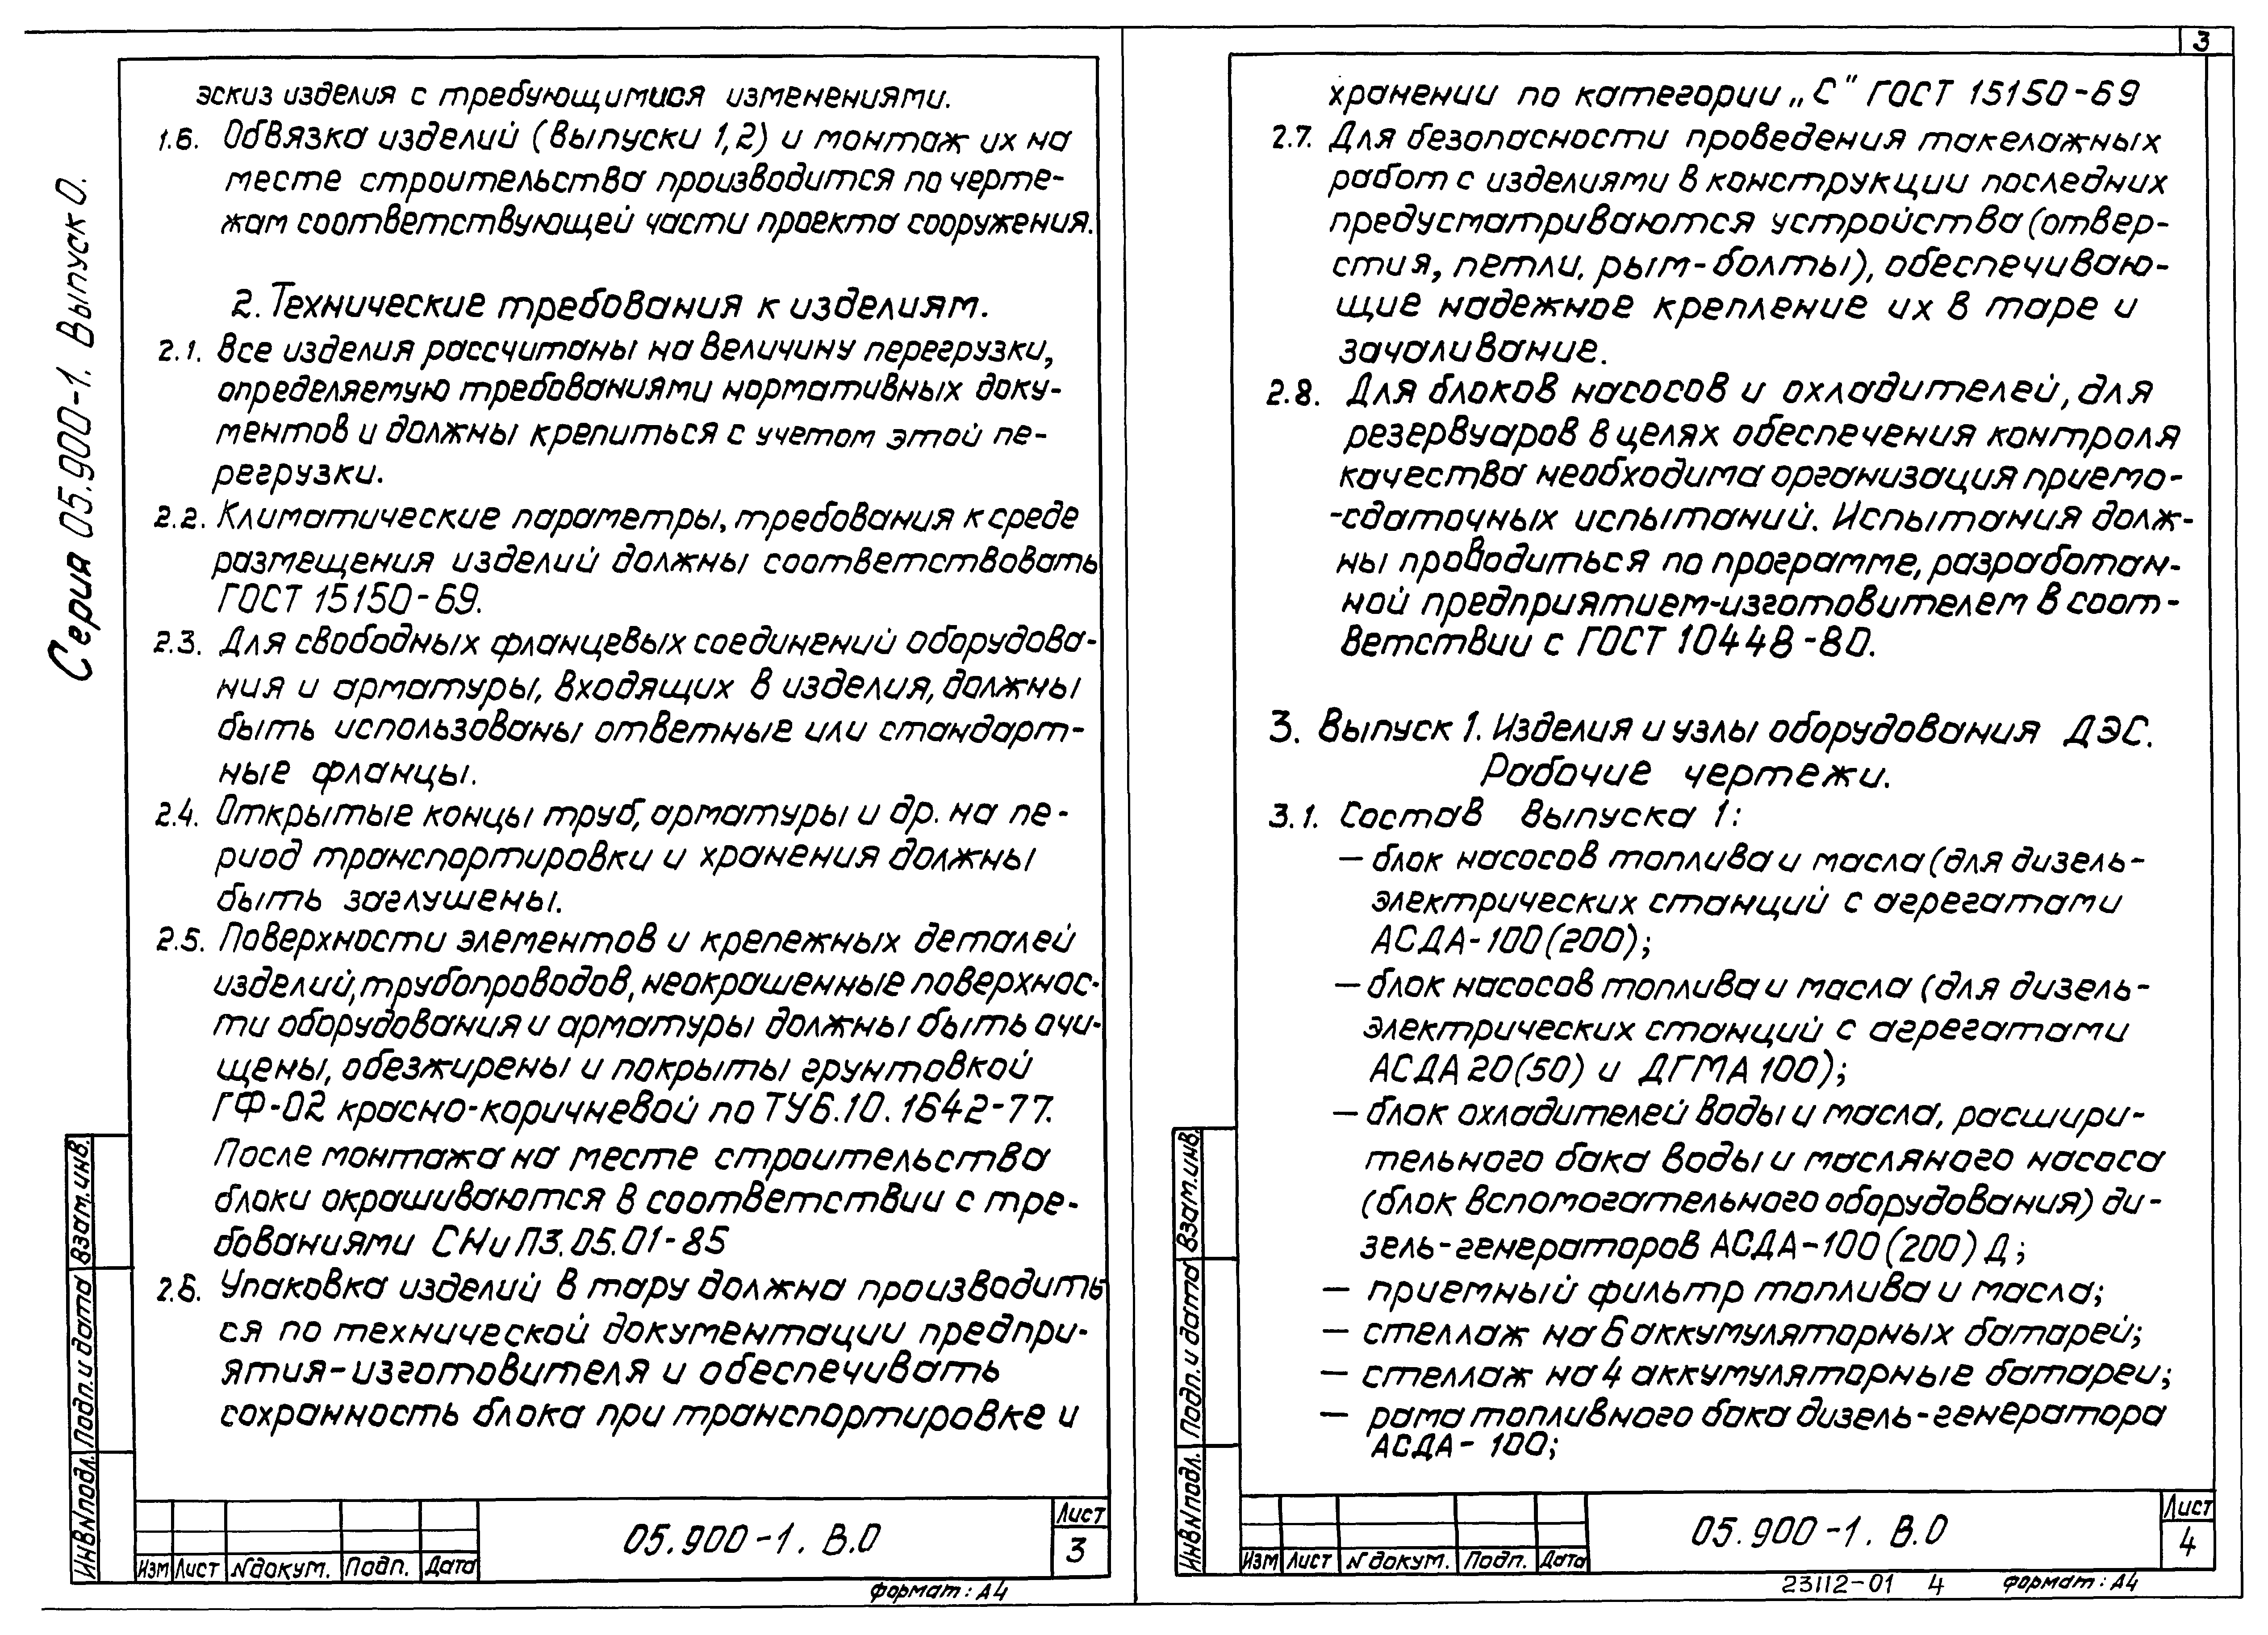 Серия 05.900-1. Выпуск 0.
эскиз изделия с требующимися изменениями.
1.6. Обвязка изделий (выпуски 1,2) и монтаж их на
месте строительства производится по черте-
жам соответствующей части проекта сооружения.
2. Технические требования к изделиям.
2.1. Все изделия рассчитаны на величину перегрузки,
определяемую требованиями нормативных доку-
ментов и должны крепиться с учетом этой пе-
регрузки.
2.2. Климатические параметры, требования к среде
размещения изделий должны соответствовать
ГОСТ 15150-69.
2.3. Для свободных фланцевых соединений оборудова-
ния и арматуры, входящих в изделия, должны
быть использованы ответные или стандарт-
ные фланцы.
2.4. Открытые концы труб, арматуры и др. на пе-
риод транспортировки и хранения должны
быть заглушены.
2.5. Поверхности элементов и крепежных деталей
изделий, трубопроводов, неокрашенные поверхнос-
ти оборудования и арматуры должны быть очи-
щены, обезжирены и покрыты грунтовкой
ГФ-02 красно-коричневой по ТУ6.10.1642-77.
После монтажа на месте строительства
блоки окрашиваются в соответствии с тре-
бованиями СНиП3.05.01-85
2.6. Упаковка изделий в тару должна производить
ся по технической документации предпри-
ятия-изготовителя и обеспечивать
сохранность блока при транспортировке и
Инв N подл. Подп. и дата Взам. инв.
Изм Лист N докум. Подп. Дата
05.900-1. В.0
Лист
3
формат: А4
3
хранении по категории „С" ГОСТ 15150-69
2.7. Для безопасности проведения такелажных
работ с изделиями в конструкции последних
предусматриваются устройства (отвер-
стия, петли, рым-болты), обеспечиваю-
щие надежное крепление их в таре и
зачаливание.
2.8. Для блоков насосов и охладителей, для
резервуаров в целях обеспечения контроля
качества необходима организация приемо-
-сдаточных испытаний. Испытания долж-
ны проводиться по программе, разработан-
ной предприятием-изготовителем в соот-
ветствии с ГОСТ 10448-80.
3. Выпуск 1. Изделия и узлы оборудования ДЭС.
Рабочие чертежи.
3.1. Состав выпуска 1:
— блок насосов топлива и масла (для дизель-
электрических станций с агрегатами
АСДА-100(200);
— блок насосов топлива и масла (для дизель-
электрических станций с агрегатами
АСДА 20(50) и ДГМА 100);
— блок охладителей воды и масла, расшири-
тельного бака воды и масляного насоса
(блок вспомогательного оборудования) ди-
зель-генераторов АСДА-100(200) Д;
— приемный фильтр топлива и масла;
— стеллаж на 6 аккумуляторных батарей;
— стеллаж на 4 аккумуляторные батареи;
— рама топливного бака дизель-генератора
АСДА- 100;
Инв N подл. Подп. и дата Взам. инв.
Изм Лист N докум. Подп. Дата
05.900-1. В.0
Лист
4
23112-01 4 формат: А4